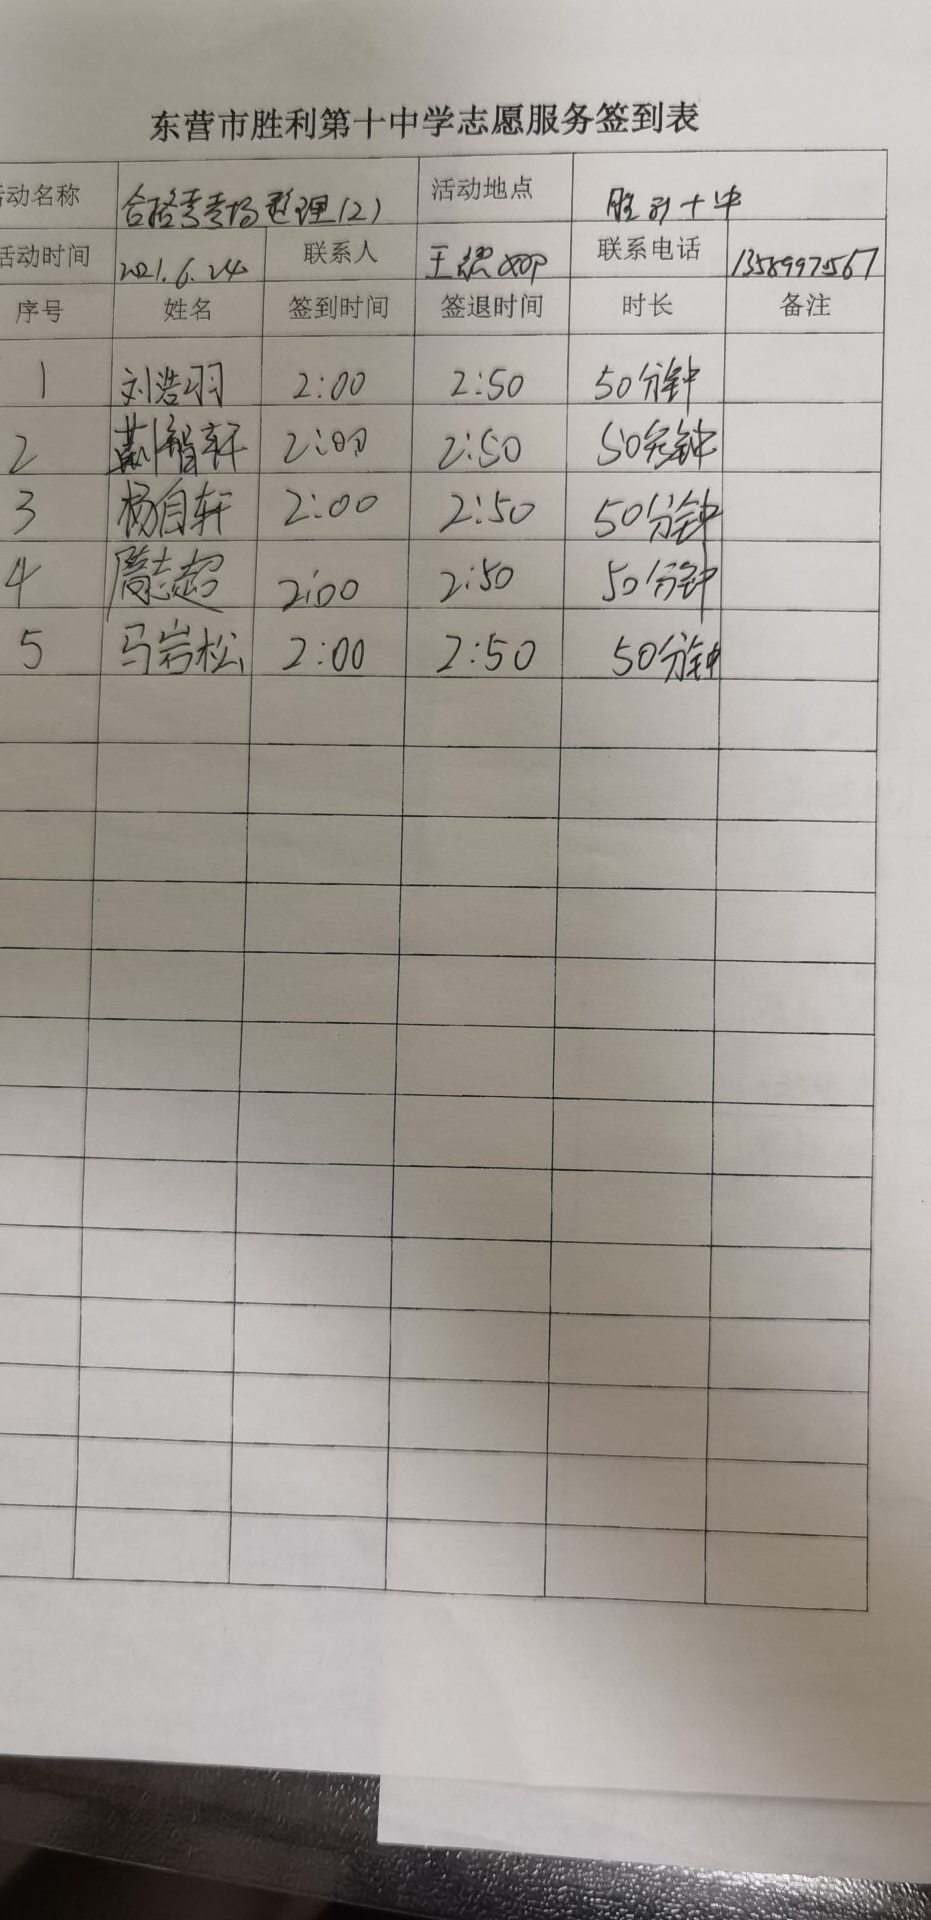 东营市胜利第十中学志愿服务签到表
活动名称 合格考考场整理(2) 活动地点 胜利十中
活动时间 2021.6.24 联系人 王 联系电话 13589972567
序号 姓名 签到时间 签退时间 时长 备注
1 刘浩羽 2:00 2:50 50分钟
2 蒯智轩 2:00 2:50 50分钟
3 杨自轩 2:00 2:50 50分钟
4 隋志超 2:00 2:50 50分钟
5 马岩松 2:00 2:50 50分钟